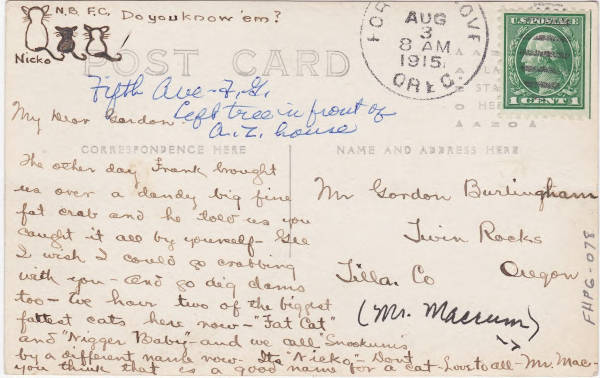 N.B. F.C. Do you know 'em?
Nicko
POST CARD
FOR OVE
AUG
3
8 AM
1915
OREG.
U.S. POSTAGE
1 CENT 1
Fifth Ave - F.G.
Left tree in front of
A.Z. house
My Dear Gordon
CORRESPONDENCE HERE
NAME AND ADDRESS HERE
The other day Frank brought
us over a dandy big fine
fat crab and he told us you
caught it all by yourself - Gee
I wish I could go crabbing
with you - and go dig clams
too - We have two of the biggest
fattest cats here now - "Fat Cat"
and "Nigger Baby" - and we call "Snookums"
by a different name now. Its "Nicko" - Don't
you think that is a good name for a cat - Love to all - Mr. Mac-
Mr Gordon Burlingham
Twin Rocks
Tilla. Co Oregon
(Mr. Macrum)
FHPG-078